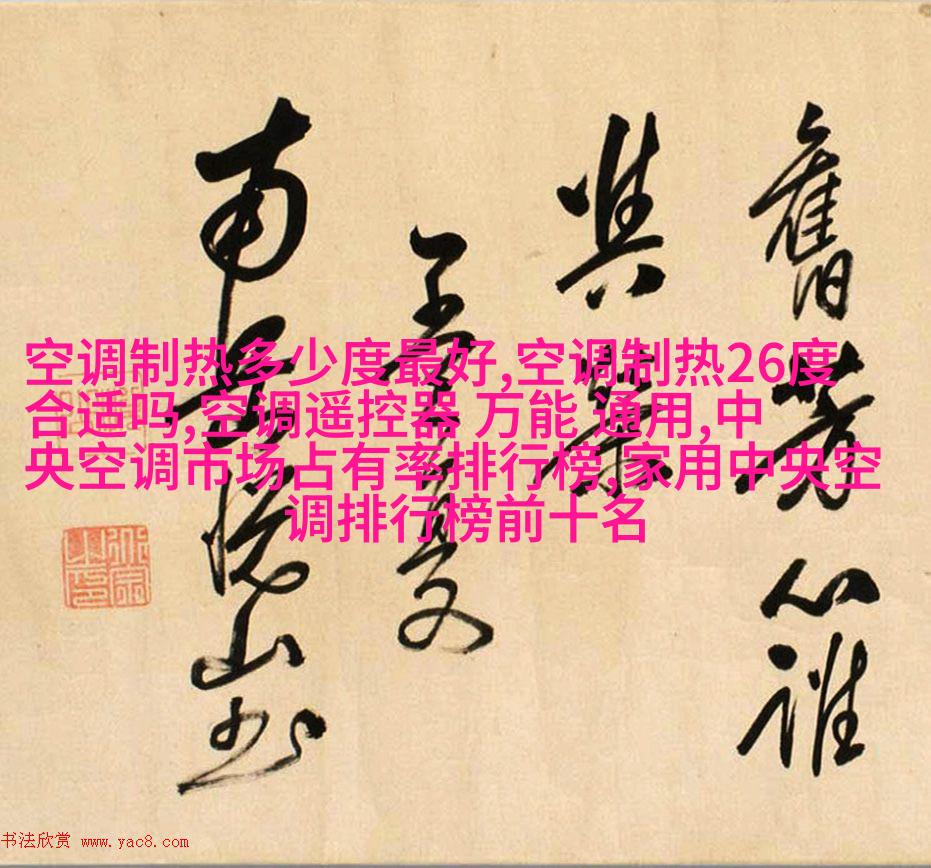 空调制热多少度最好,空调制热26度
合适吗,空调遥控器 万能 通用,中
央空调市场占有率排行榜,家用中央空
调排行榜前十名
舊勞心誰
與
南岳悦山书
书法欣赏 www.yac8.com